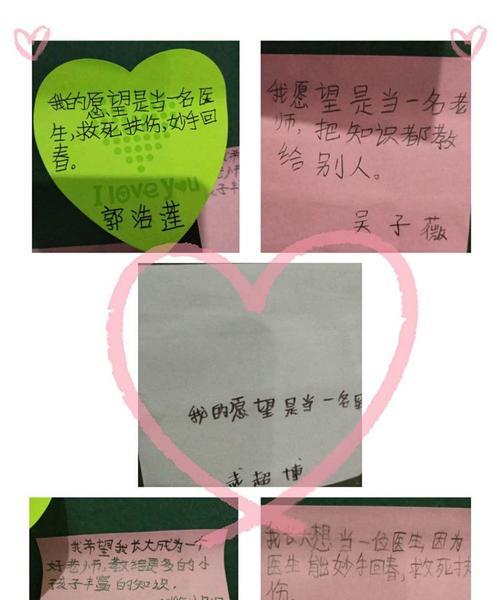 我的愿望是当一名医
生,救死扶伤,妙手回
春。
I love you
郭浩莲
我愿望是当一名老
师,把知识都教
给别人。
吴子薇
我的愿望是当一名
武超博
我希望我长大成为一个
好老师,教给更多的小
孩子丰富的知识.
我长大想当一位医生,因为
医生能妙手回春,救死扶
伤.